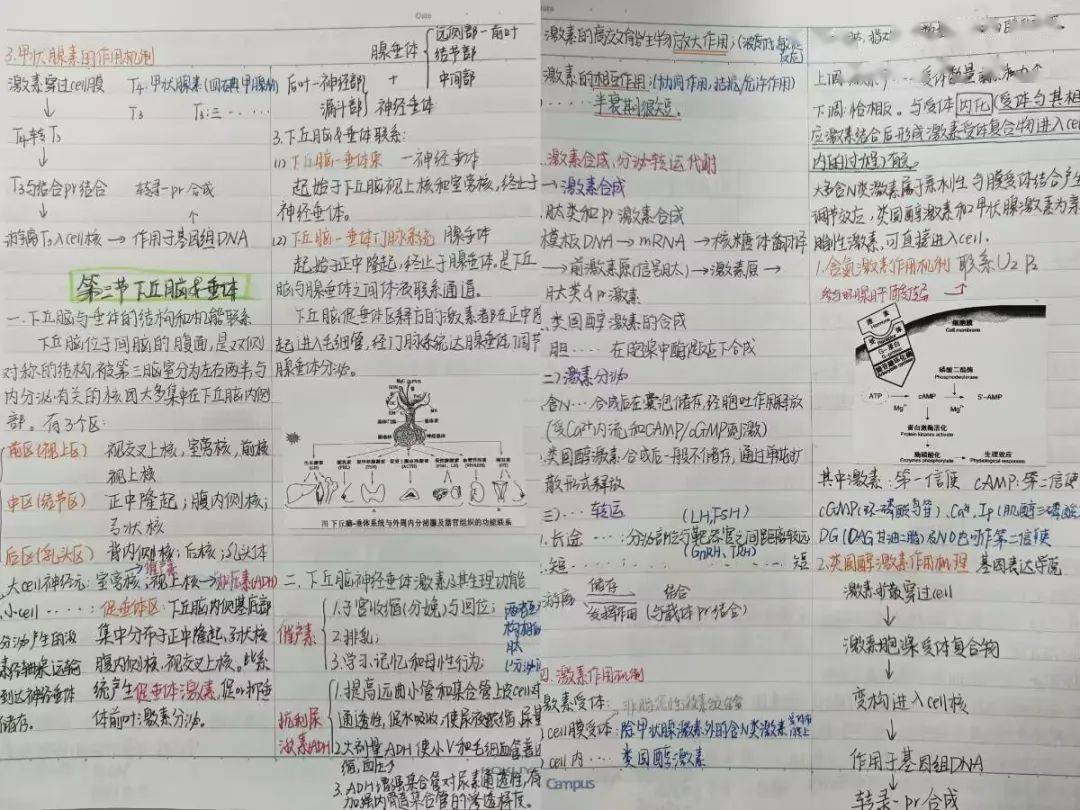 Date
3.甲状腺素的作用机制
激素穿过cell膜
T4:甲状腺素(四碘甲腺原
T3
T4转T3
↓
T3与结合pr结合
转录-pr合成
↓
↑
游离T3入cell核→作用于基因组DNA
第二节下丘脑与垂体
一.下丘脑与垂体的结构和机能联系
下丘脑位于间脑的腹面,是双侧
对称的结构,被第三脑室分为左右两半与
内分泌有关的核团大多集中在下丘脑内侧
部。有3个区:
前区(视上区)
视交叉上核,室旁核,前核
视上核
中区(结节区)
正中隆起;腹内侧核;
弓状核
后区(乳头区)
背内侧核;后核;乳头体
催产素
大cell神经元:室旁核,视上核→抗利尿素(ADH)
小cell·····:促垂体区:下丘脑内侧基底部
分泌产生的激
集中分布于正中隆起,弓状核
素经轴浆运输
腹内侧核,视交叉上核。
到达神经垂体
统产生促垂体激素,
储存。
体前叶激素分泌。
腺垂体
远侧部-前叶
结节部
中间部
后叶-神经部
+
漏斗部
神经垂体
3.下丘脑与垂体联系:
(1)下丘脑-垂体束
-神经垂体
起始于下丘脑视上核和室旁核,终止于
神经垂体。
(2)下丘脑-垂体门脉系统
腺垂体
起始于正中隆起,终止于腺垂体,是下丘
脑与腺垂体之间体液联系通道。
下丘脑促垂体区释放的激素都在正中隆
起进入毛细管,经门脉系统达腺垂体,调节
腺垂体分泌。
图 下丘脑-垂体系统与外周内分泌腺及器官组织的功能联系
二、下丘脑神经垂体激素及其生理功能
催产素
1.子宫收缩(分娩)与回位;
2.排乳;
3.学习、记忆和母性行为;
抗利尿
激素ADH
1.提高远曲小管和集合管上皮cell对
通透性,促水吸收,使尿液浓缩,尿量
2.大剂量ADH使小V和毛细血管
缩,血压↑
3.ADH增强集合管对尿素通透性,有
加强内髓高集合管的渗透梯度。
激素的高效能生物放大作用;
激素的相互作用;(协同作用,拮抗,允许作用)
·····半衰期很短。
激素合成、分泌转运代谢
→激素合成
肽类和pr激素合成
模板DNA→mRNA→核糖体翻译
→前激素原(信号肽)→激素原→
肽类和pr激素
类固醇激素的合成
胆····在胞浆中酶促反应下合成
二)激素分泌
含N···合成后在囊泡储存,经胞吐作用释放
(受Ca²⁺内流和CAMP/cGMP刺激)
类固醇激素合成后一般不储存,通过
散形式释放
三)··转运
(LH,FSH)
1.长途···:分泌部位与靶器官之间距离较远
(GnRH,TRH)
短·····短
游离
储存
结合
发挥作用
(与载体pr结合)
四.激素作用机制
激素受体:
cell膜受体:除甲状腺激素外的含N类激素
cell内···类固醇激素
Campus
下调:恰相反。与受体内化(受体与其相
应激素结合后形成激素受体复合物进入cell
内的过程)有关。
大多含N类激素属于亲水性与膜受体结合产生
调节效应,类固醇激素和甲状腺激素为亲
脂性激素,可直接进入cell.
1.含氮激素作用机制
联系
激素
Hormone
G-蛋白
细胞膜
Cell membrane
磷酸二酯酶
Phosphodiesterase
ATP
cAMP
5'-AMP
Mg²⁺
Mg²⁺
蛋白激酶活化
Protein kinases activate
酶磷酸化
Enzymes phosphorylate
生理效应
Physiological responses
其中激素:第一信使 cAMP:第二信使
cGMP(环磷酸鸟苷)、Ca²⁺、Ip3(肌醇三磷酸)
DG(DAG,甘油二酯)及NO也可作第二信使
2.类固醇激素作用机理
基因表达学说
激素扩散穿过cell
↓
激素胞浆受体复合物
↓
变构进入cell核
↓
作用于基因组DNA
↓
转录-pr合成